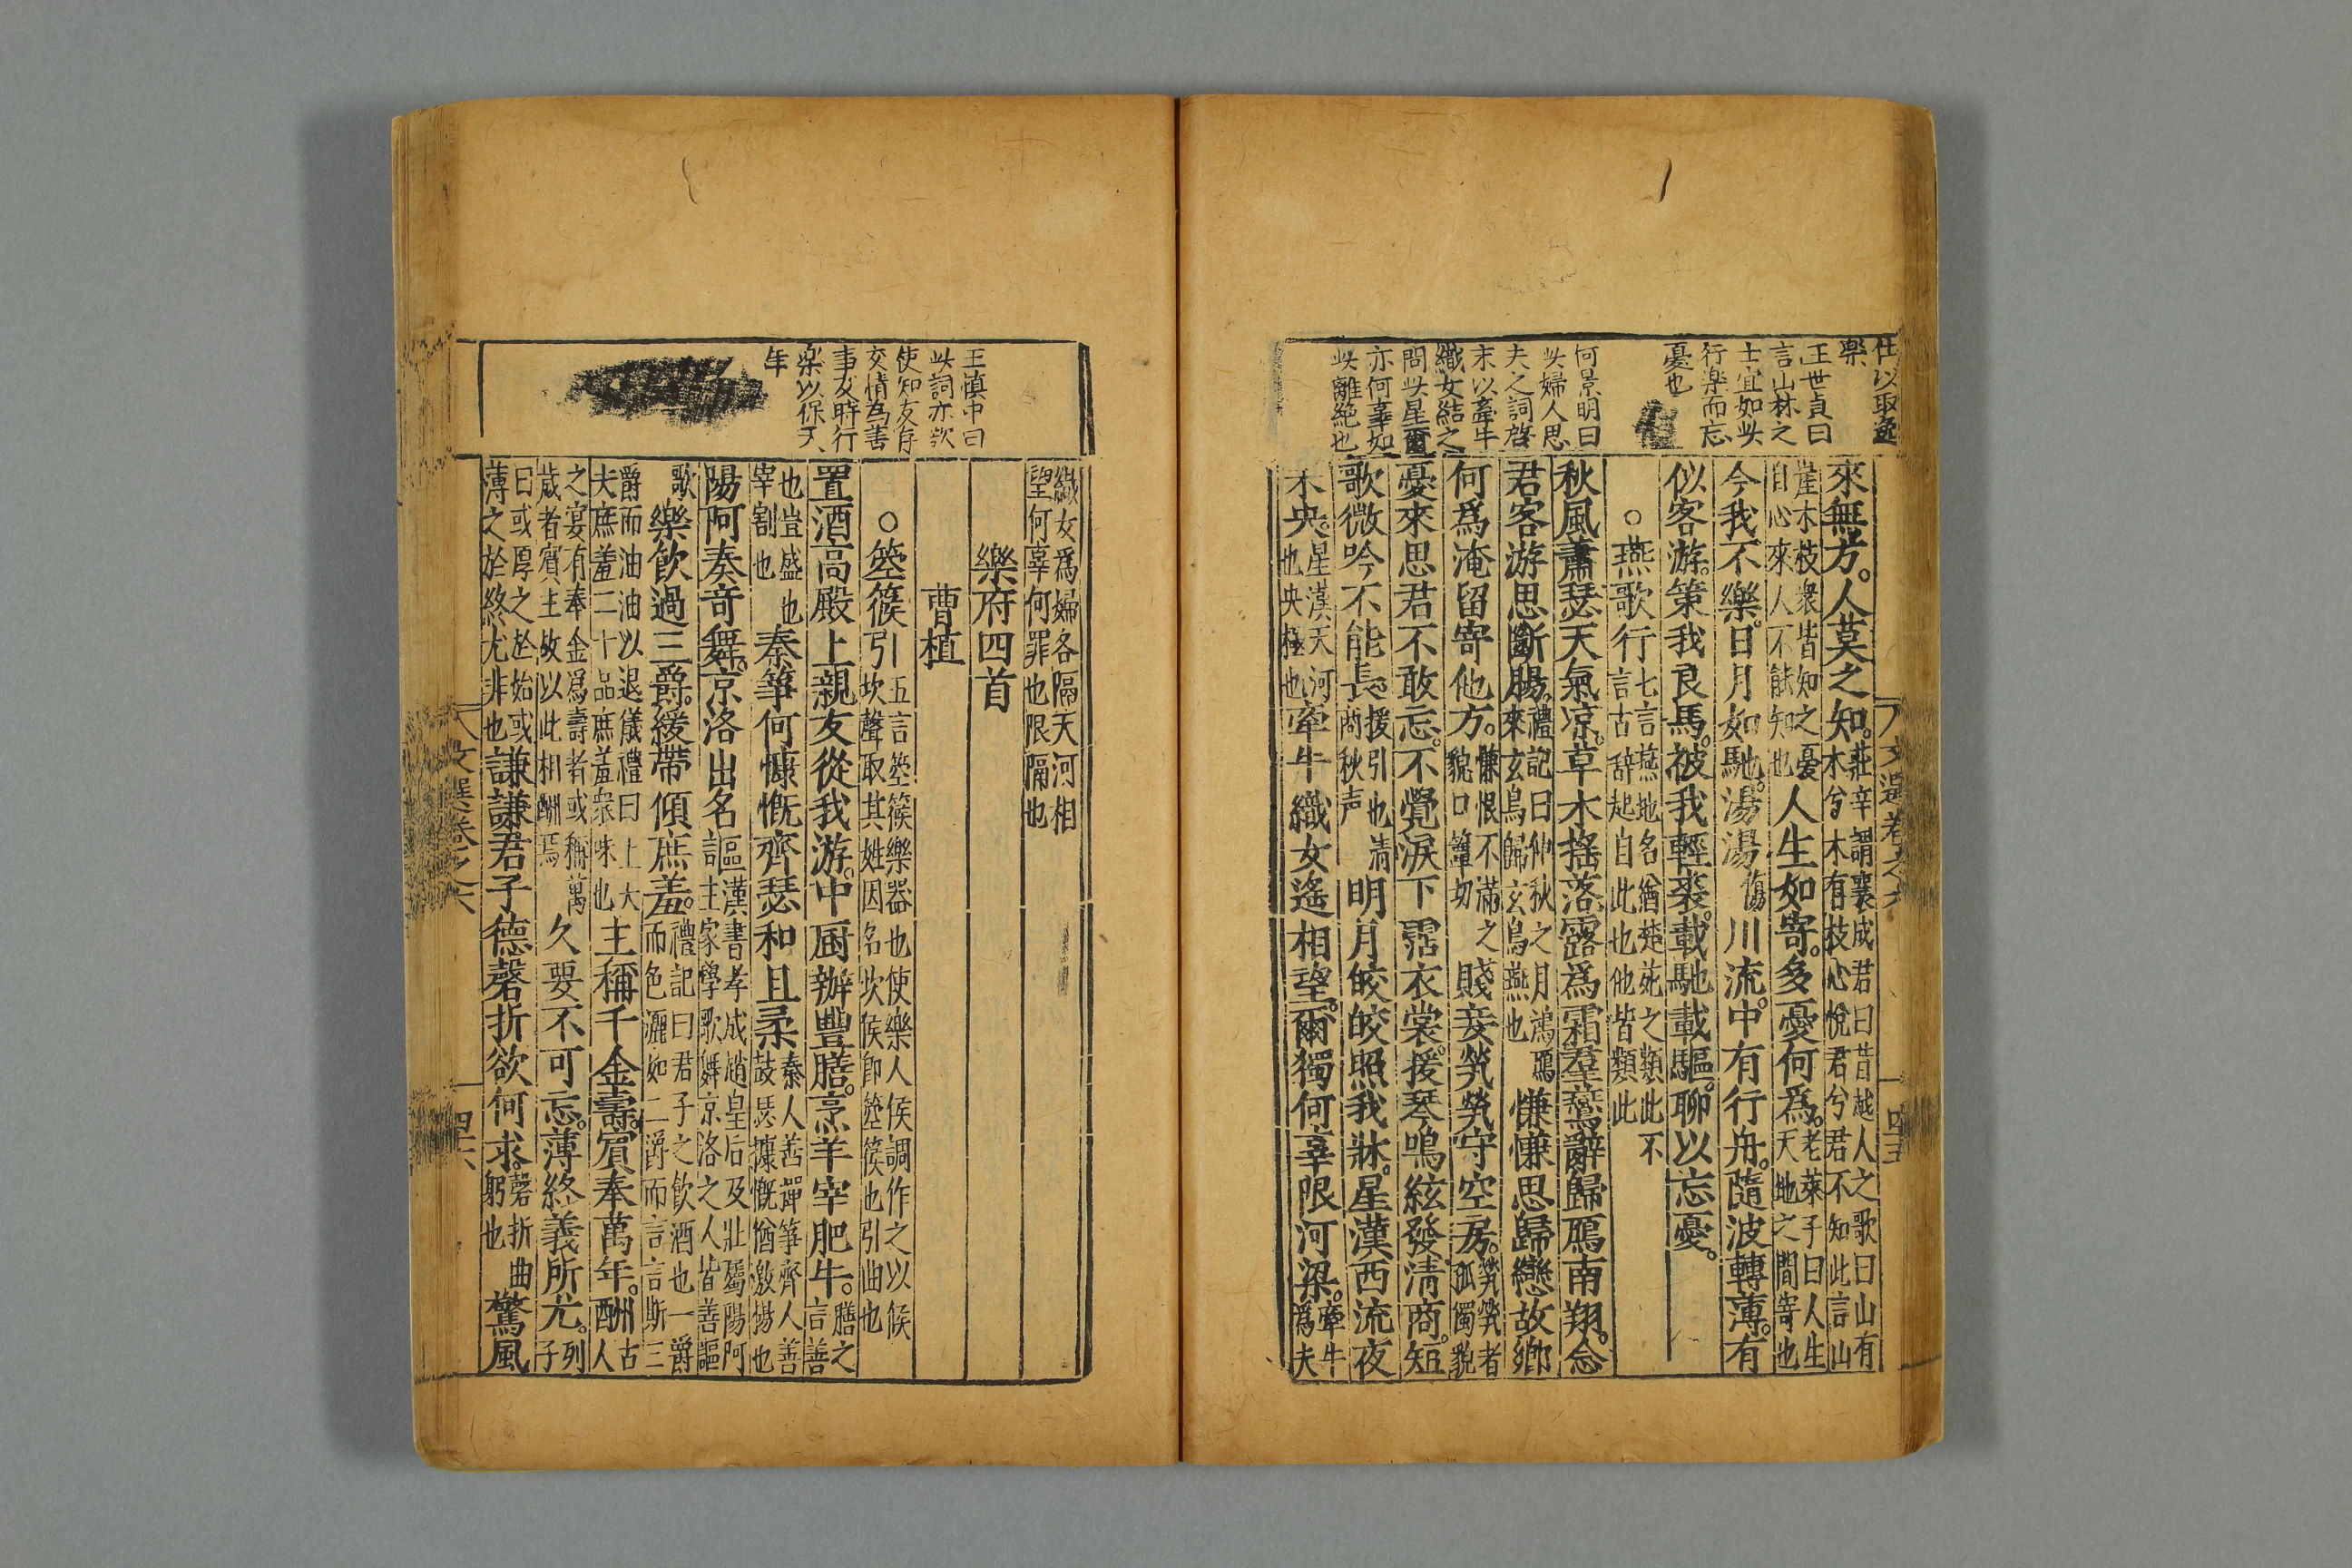 仕以取逸
樂
王世貞曰
言山林之
士宜如此
行樂而忘
憂也
何景明曰
此婦人思
夫之詞啓
末以牽牛
織女結之
問此星爾
亦何辜如
此離絶也
來無方。人莫之知。莊辛謂襄成君曰昔越人之歌曰山有
木兮木有枝心悅君兮君不知此言山
崖木枝衆皆知之憂
自心來人不能知也人生如寄。多憂何爲。老萊子曰人生
天地之間寄也
今我不樂。日月如馳。湯湯傷川流。中有行舟。隨波轉薄。有
似客游。策我良馬。被我輕裘。載馳載驅。聊以忘憂。
○燕歌行七言燕地名猶楚苑之類此不
言古辞起自此也他皆類此
秋風蕭瑟天氣凉。草木摇落露爲霜羣燕辭歸鴈南翔。念
君客游思斷腸。禮記曰仲秋之月鴻鴈
來玄鳥歸玄鳥燕也慊慊思歸戀故鄉
何爲淹留寄他方。慊恨不滿之
貌口簟切賤妾煢煢守空房。煢煢者
孤獨貌
憂來思君不敢忘。不覺淚下霑衣裳。援琴鳴絃發清商。短
歌微吟不能長。援引也清
商秋声明月皎皎照我牀。星漢西流夜
未央。星漢天河
也央極也牽牛織女遙相望。爾獨何辜限河梁。牽牛
爲夫
文選卷之六
四五
王愼中曰
此詞亦欲
使知友存
交情爲善
事及時行
樂以保天
年
織女爲婦各隔天河相
望何辜何罪也限隔也
樂府四首
曹植
○箜篌引五言箜篌樂器也使樂人侯調作之以候
坎聲取其姓因名坎侯卽箜篌也引曲也
置酒高殿上親友從我游。中厨辦豐膳。烹羊宰肥牛。膳之
言善
也豈盛也
宰割也秦箏何慷慨齊瑟和且柔秦人善彈箏齊人善
鼓瑟慷慨猶激揚也
陽阿奏奇舞。京洛出名謳漢書孝成趙皇后及壯屬陽阿
主家學歌舞京洛之人皆善謳
歌樂飲過三爵。緩帶傾庶羞。禮記曰君子之飲酒也一爵
而色灑如二爵而言言斯三
爵而油油以退儀禮曰上大
夫庶羞二十品庶羞衆味也主稱千金壽。賓奉萬年。酬古
人
之宴有奉金爲壽者或稱萬
歲者賓主故以此相酬焉久要不可忘。薄終義所尤。列
子
曰或厚之於始或
薄之於終尤非也謙謙君子德磬折欲何求。磬折曲
躬也驚風
文選卷之六
四六